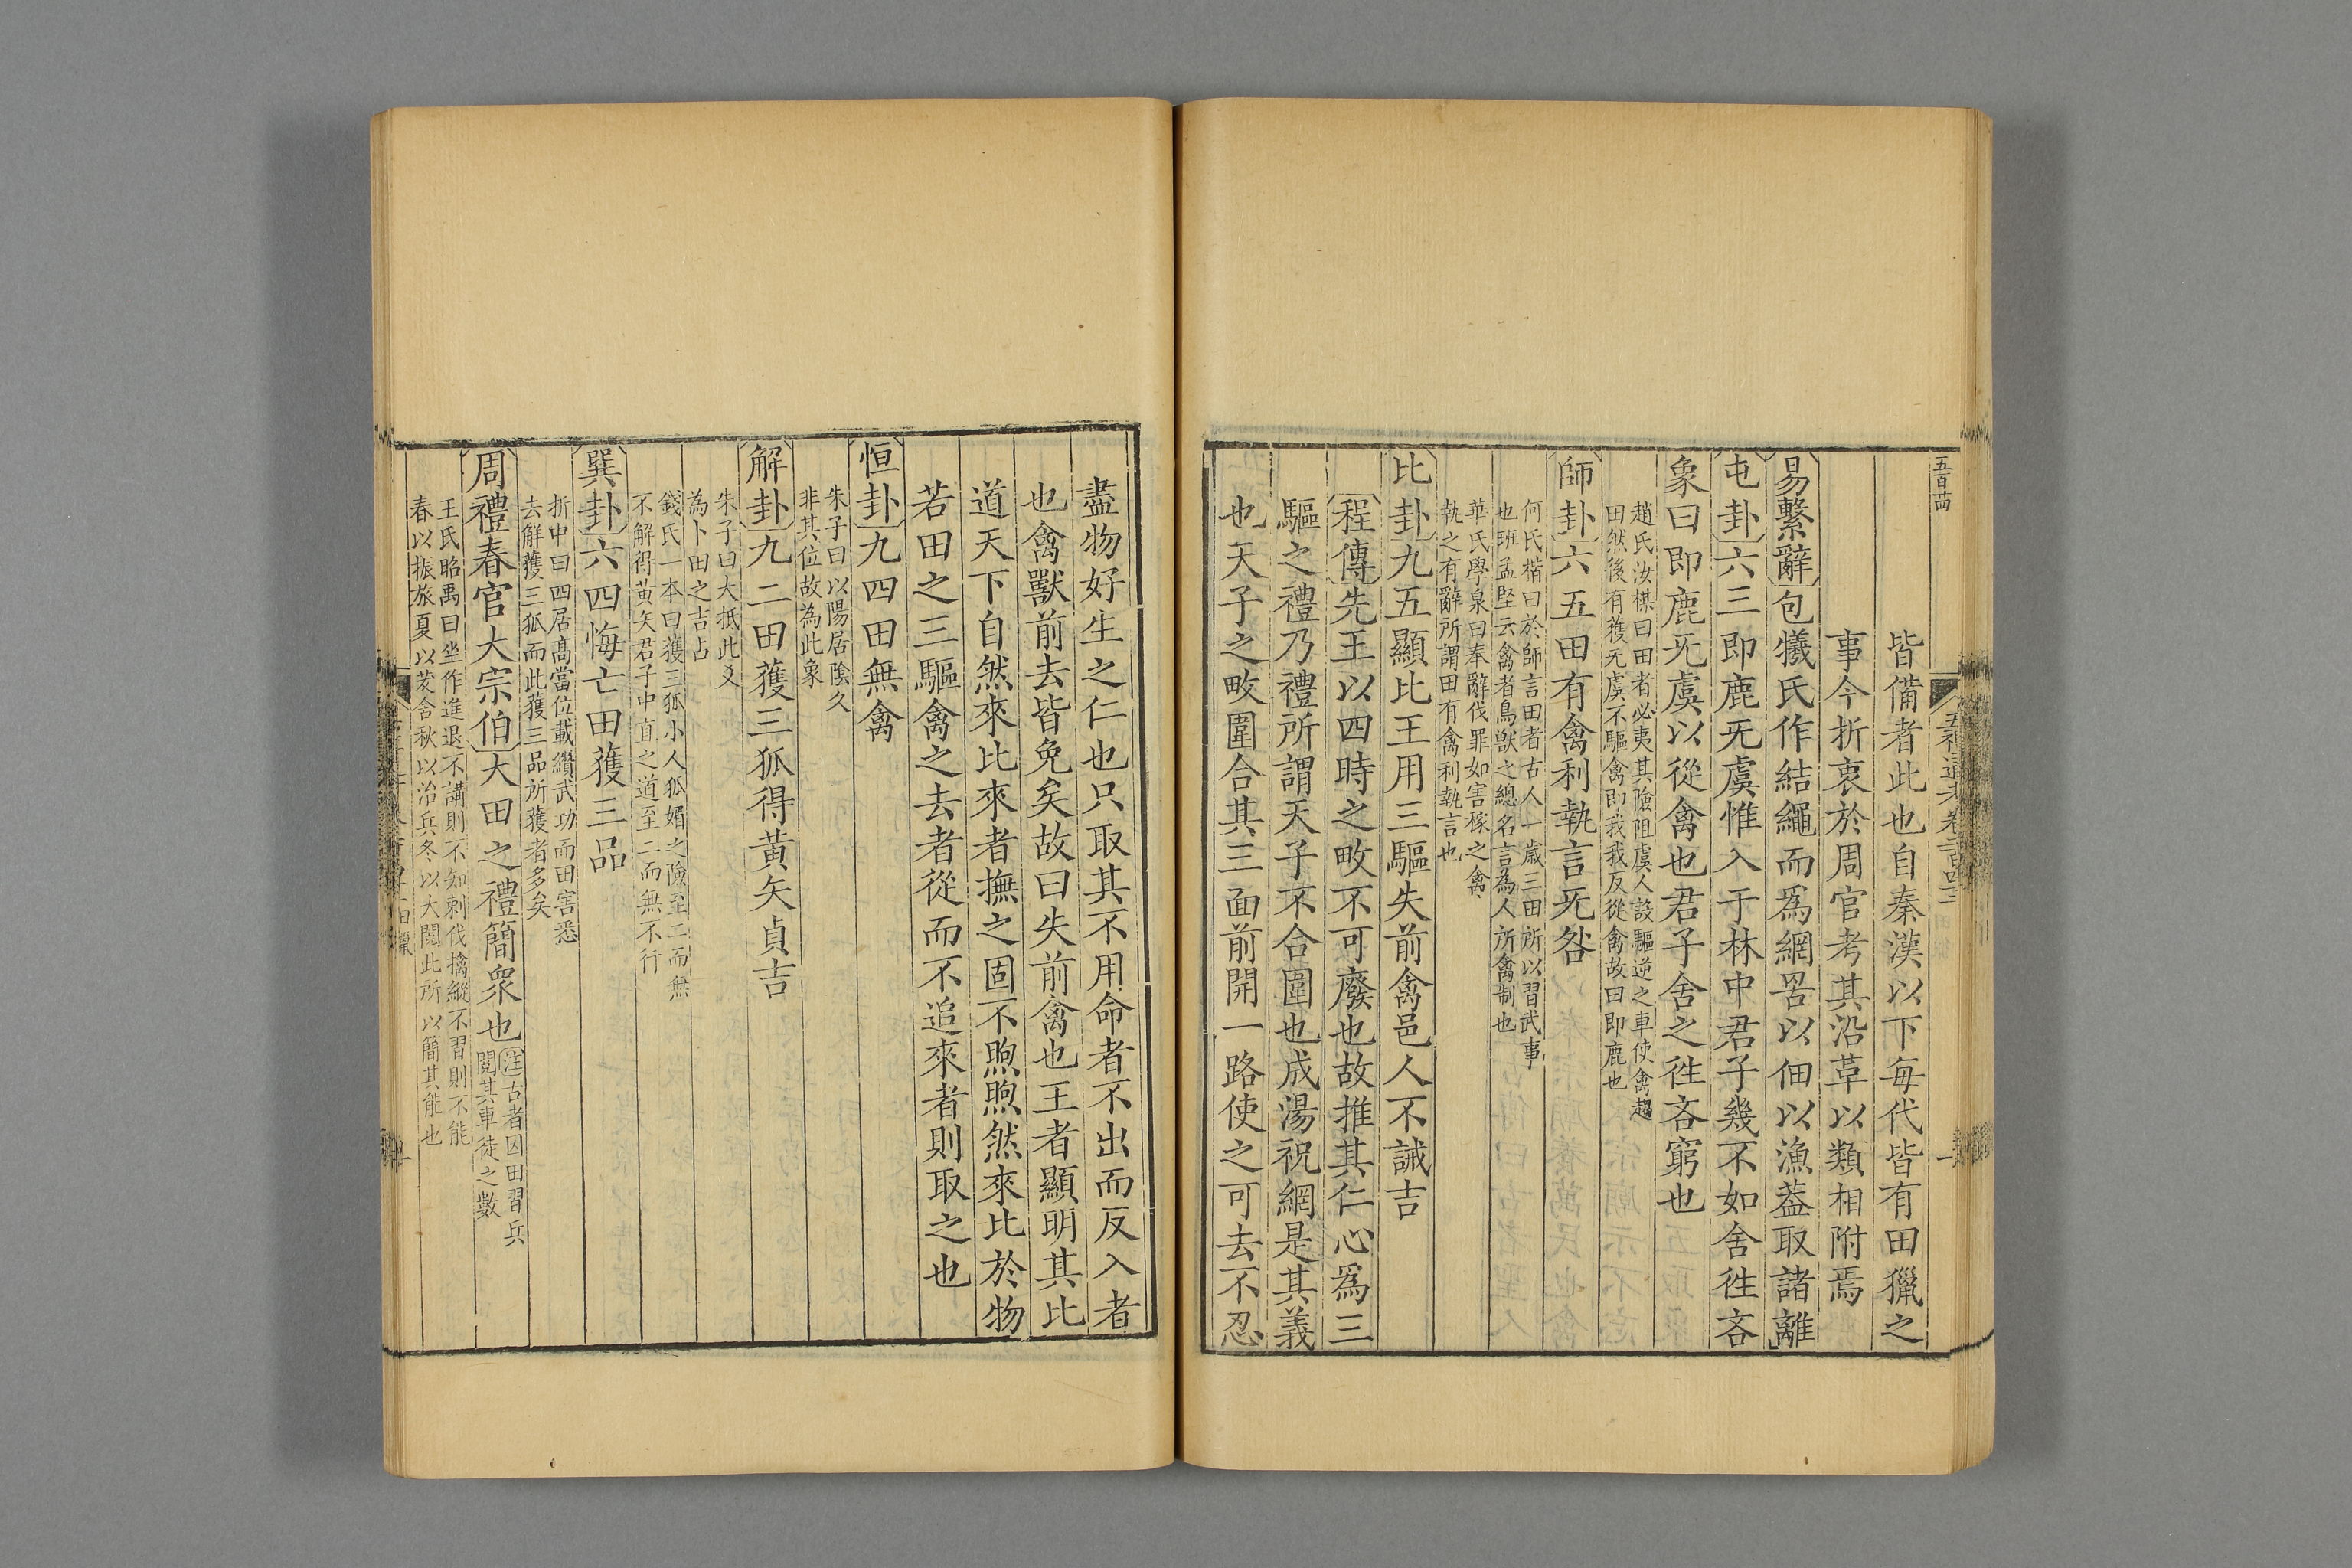 五百苗
五禮通考卷二百四十二
一
皆備者此也自秦漢以下每代皆有田獵之
事今折衷於周官考其沿革以類相附焉
易繫辭包犧氏作結繩而爲網罟以佃以漁葢取諸離
屯卦六三即鹿旡虞惟入于林中君子幾不如舍徃吝
象曰即鹿旡虞以從禽也君子舍之徃吝窮也
趙氏汝楳曰田者必夷其險阻虞人設驅逆之車使禽趨
田然後有獲旡虞不驅禽即我我反從禽故曰即鹿也
師卦六五田有禽利執言旡咎
何氏楷曰於師言田者古人一歲三田所以習武事
也班孟堅云禽者鳥獸之總名言為人所禽制也
華氏學泉曰奉辭伐罪如害稼之禽
執之有辭所謂田有禽利執言也
比卦九五顯比王用三驅失前禽邑人不誡吉
程傳先王以四時之畋不可廢也故推其仁心爲三
驅之禮乃禮所謂天子不合圍也成湯祝網是其義
也天子之畋圍合其三面前開一路使之可去不忍
盡物好生之仁也只取其不用命者不出而反入者
也禽獸前去皆免矣故曰失前禽也王者顯明其比
道天下自然來比來者撫之固不煦煦然來比於物
若田之三驅禽之去者從而不追來者則取之也
恒卦九四田無禽
朱子曰以陽居陰久
非其位故為此象
解卦九二田獲三狐得黃矢貞吉
朱子曰大抵此爻
為卜田之吉占
錢氏一本曰獲三狐小人狐媚之險至二而無
不解得黃矢君子中直之道至二而無不行
巽卦六四悔亡田獲三品
折中曰四居高當位載纘武功而田害悉
去解獲三狐而此獲三品所獲者多矣
周禮春官大宗伯大田之禮簡衆也
注古者因田習兵
閱其車徒之數
王氏昭禹曰坐作進退不講則不知刺伐擒縱不習則不能
春以振旅夏以茇舍秋以治兵冬以大閱此所以簡其能也